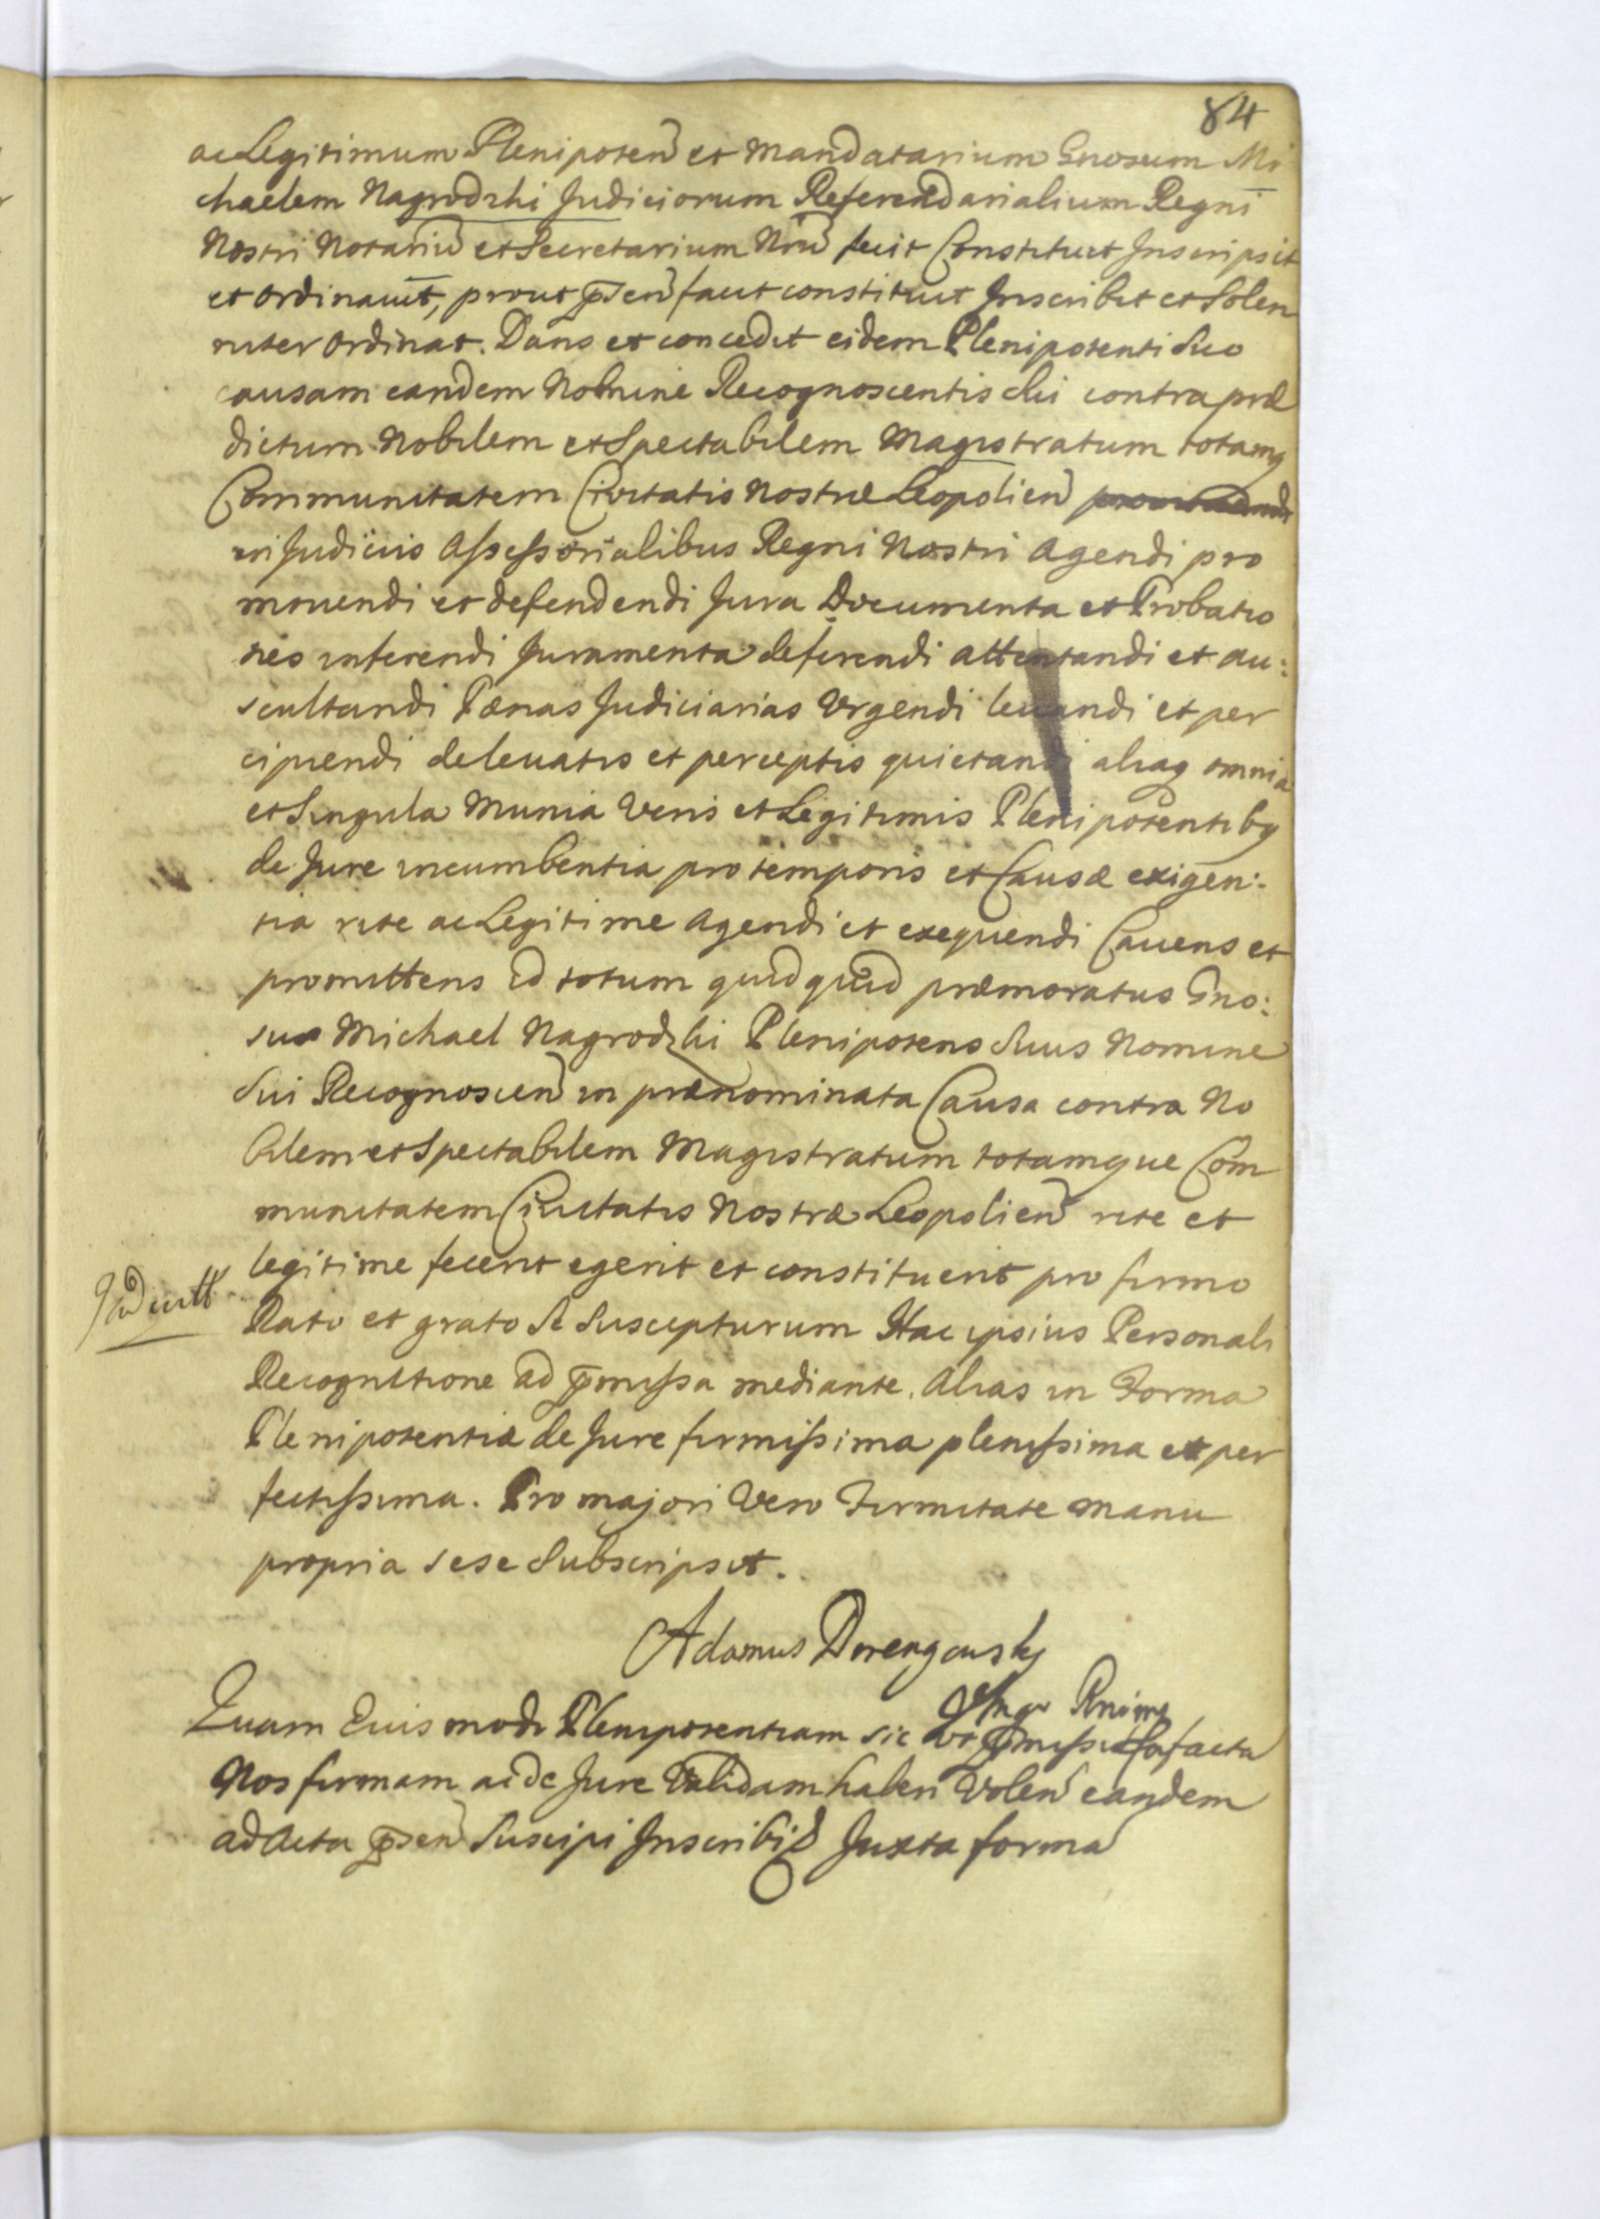 84
ac Legitimum Plenipoten et Mandatarium Gnosum Mi
chaelem Nagrodzki Judiciorum Referendarialium Regni
Nostri Notariu et Secretarium Nru fecit Constituit Inscripsit
et Ordinavit, prout psen facit constituit Inscribit et Solen
niter Ordinat. Dans et concedit eidem Plenipotenti Suo
causam eandem Nomine Recognoscentis Sui contra præ
dictum Nobilem et Spectabilem Magistratum totamq
Communitatem Civitatis Nostræ Leopolien
in Judiciis Assessorialibus Regni Nostri Agendi pro
movendi et defendendi Jura Documenta et Probatio
nes inferendi Juramenta deferendi attentandi et au:
scultandi Pænas Judiciarias Urgendi levandi et per
cipiendi de levatis et perceptis quietandi aliaq omnia
et Singula Munia Veris et Legitimis Plenipotentibq
de Jure incumbentia pro temporis et Causæ exigen:
tia rite ac Legitime Agendi et exequendi Cavens et
promittens id totum quidquid præmoratus Gno:
sus Michael Nagrodzki Plenipotens Suus Nomine
Sui Recognoscen in prænominata Causa contra No
bilem et Spectabilem Magistratum totamque Com
munitatem Civitatis Nostræ Leopolien rite et
legitime fecerit egerit et constituerit pro firmo
Rato et grato Se Suscepturum Hac ipsius Personali
Recognitione ad pmissa mediante. Alias in Forma
Plenipotentiæ de Jure firmissima plenissima et per
fectissima. Pro majori Vero Firmitate manu
propria sese Subscripsit.
Adamus
Quam Eiusmodi Plenipotentiam sic Ut pmissu facta
Nos firmam ac de Jure Validam haberi Volen eandem
ad Acta psen Suscipi Inscribi Juxta forma